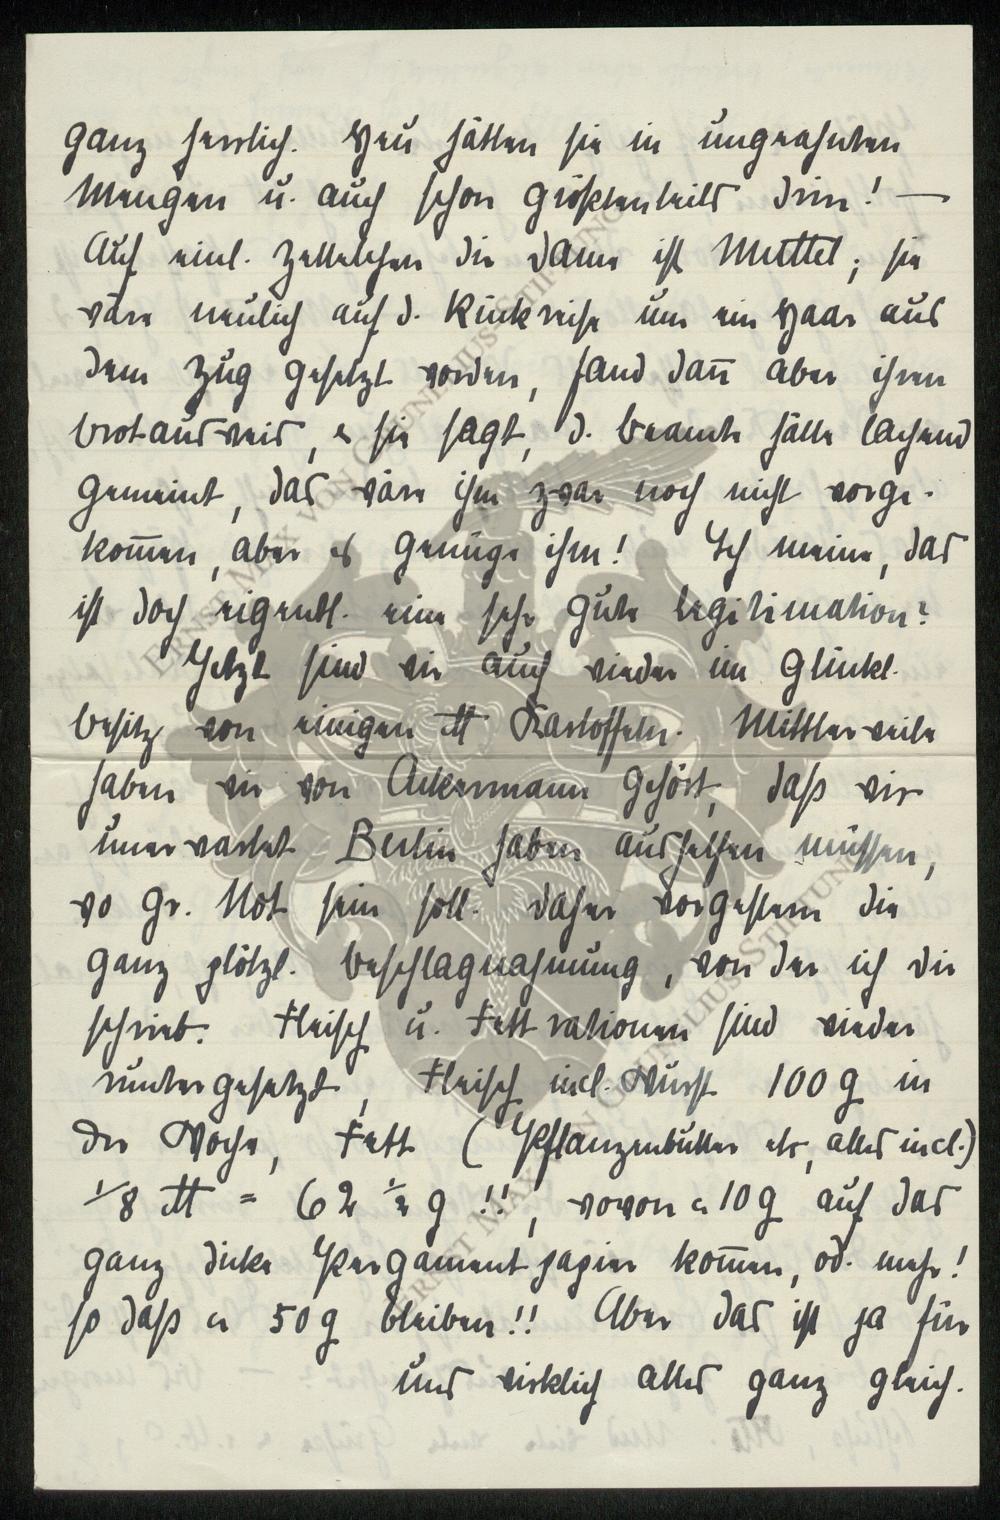 ganz herrlich. Heu hätten sie in ungeahnten
Mengen u. auch schon größtenteils drin! —
Auf einl. Zettelchen die Dame ist Muttel; sie
wäre neulich auf d. Rückreise um ein Haar aus
dem Zug gesetzt worden, fand dañ aber ihren
Brotausweis, u sie sagt, d. Beamte hätte lachend
gemeint, das wäre ihm zwar noch nicht vorge-
kom̄en, aber es genüge ihm! Ich meine, das
ist doch eigentl. eine sehr gute Legitimation?
Jetzt sind wir auch wieder im glückl.
Besitz von einigen ℔ Kartoffeln. Mittlerweile
haben wir von Ackermann gehört, daß wir
unerwartet Berlin haben aushelfen müssen,
wo gr. Not sein soll. Daher vorgestern die
ganz plötzl. Beschlagnahmung, von der ich dir
schrieb. Fleisch u. Fettrationen sind wieder
runtergesetzt, Fleisch incl. Wurst 100 g in
der Woche, Fett (Pflanzenbutter etc, alles incl.)
1/8 ℔ = 62 ½ g !!, wovon ca 10 g auf das
ganz dicke Pergamentpapier kom̄en, od. mehr!
so daß ca 50 g bleiben!! Aber das ist ja für
uns wirklich alles ganz gleich.
ERNST MAX VON GRUNELIUS-STIFTUNG
ERNST MAX VON GRUNELIUS-STIFTUNG